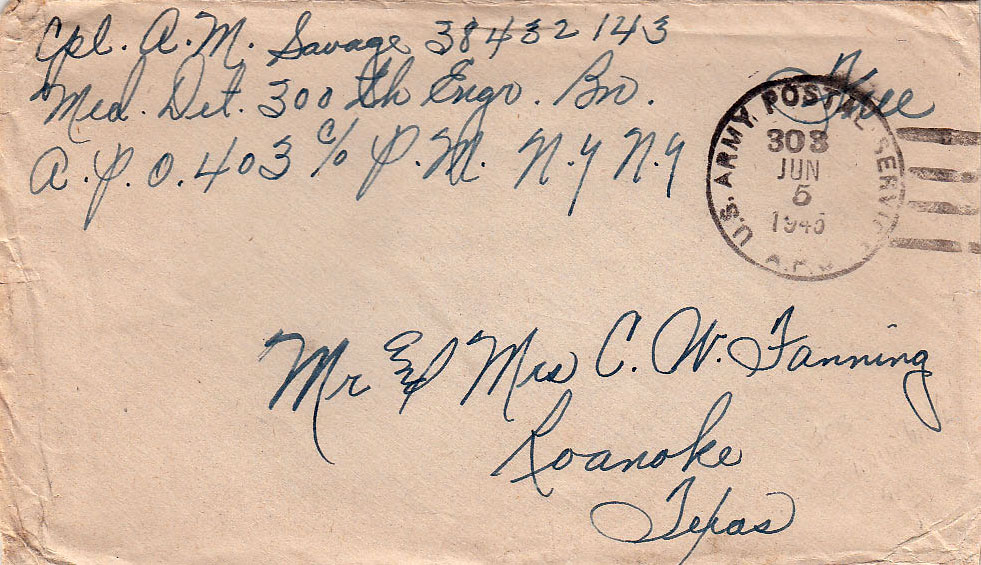 Cpl. A. M. Savage 38432143
Med. Det. 300th Engr. Bn.
A.P.O. 403 c/o P.M. N.Y N.Y
Free
U.S. ARMY POSTAL SERVICE
308
JUN
5
1945
A.P.O.
Mr & Mrs C. W. Fanning
Roanoke
Texas